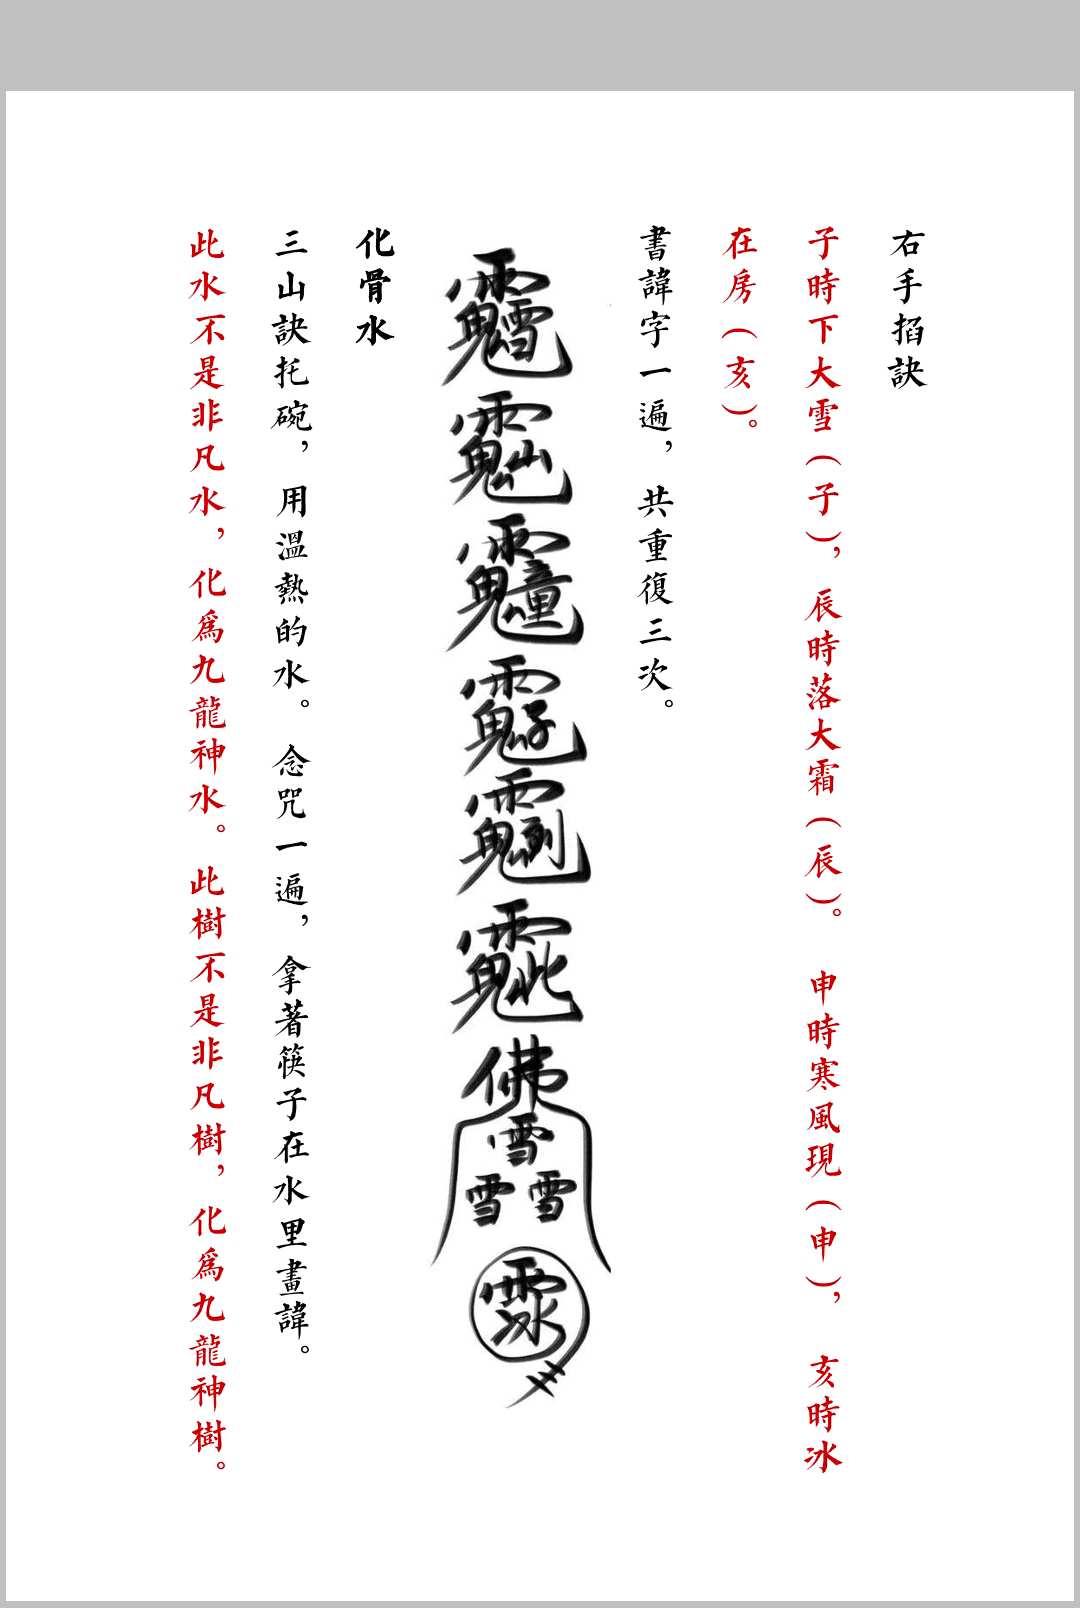 右手掐訣
子時下大雪(子)，辰時落大霜(辰)。申時寒風現(申)，亥時冰
在房(亥)。
書諱字一遍，共重復三次。
佛
雪
雪 雪
化骨水
三山訣托碗，用溫熱的水。念咒一遍，拿著筷子在水里畫諱。
此水不是非凡水，化爲九龍神水。此樹不是非凡樹，化爲九龍神樹。